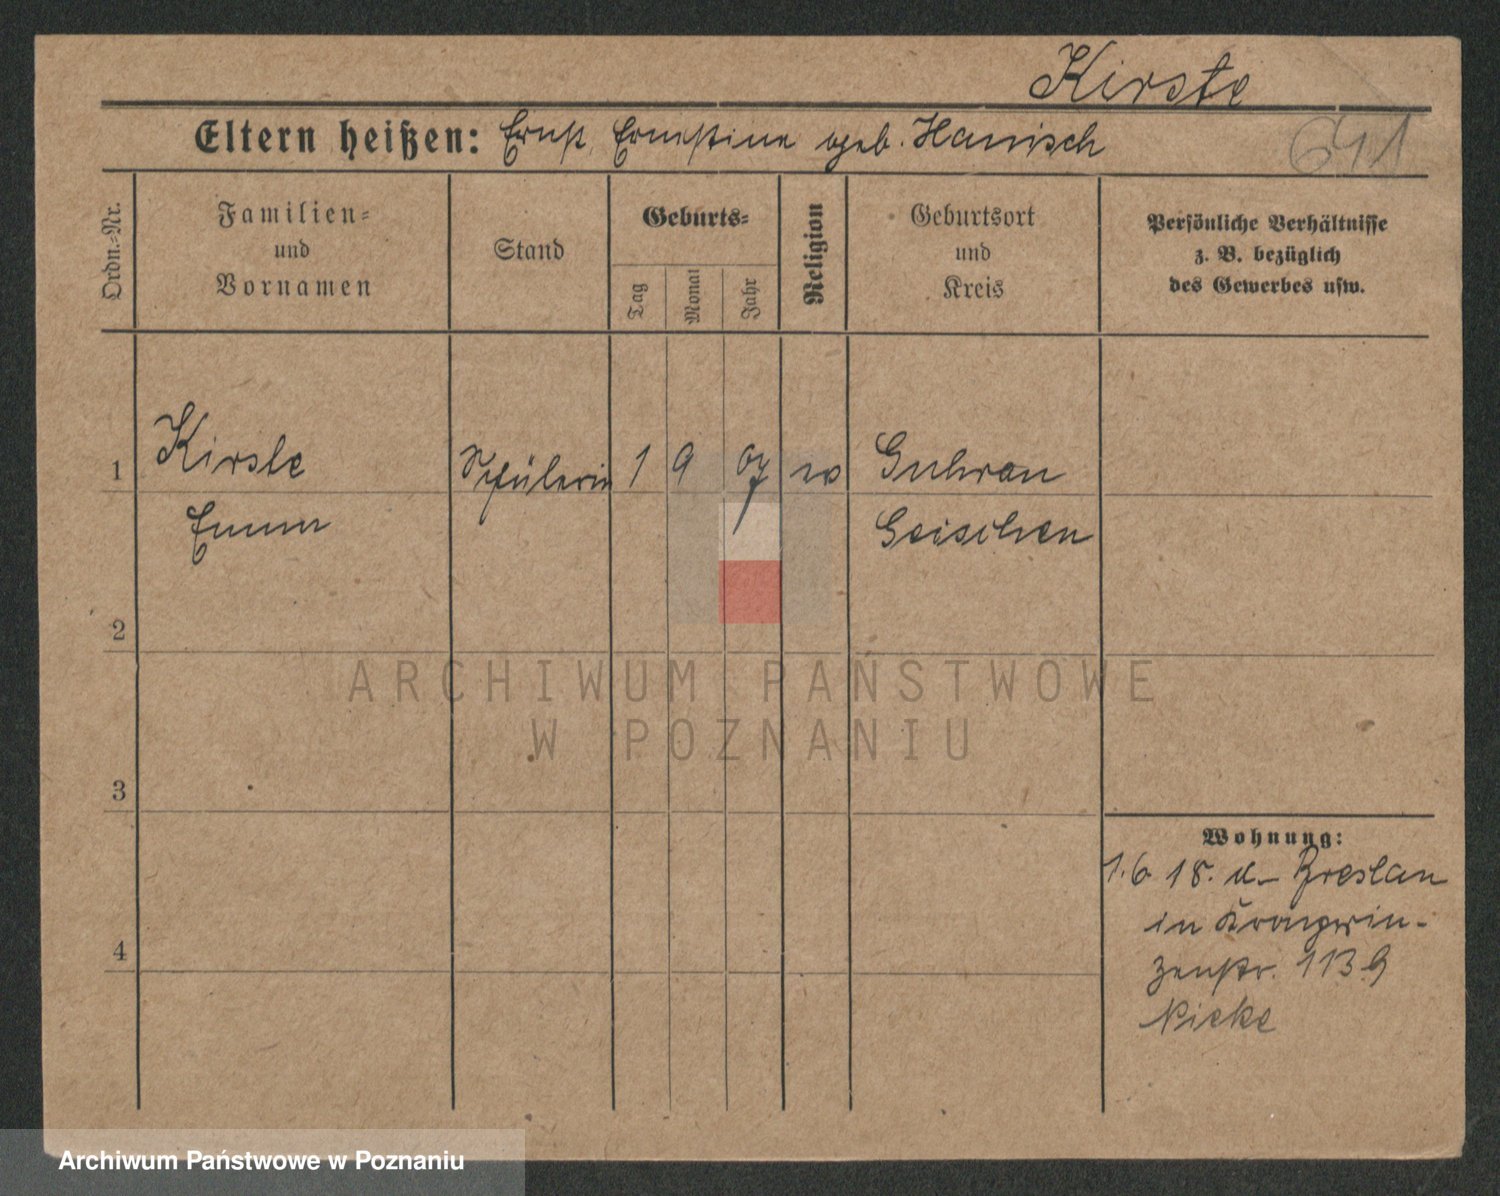 Kirste
Eltern heißen: Ernst, Ernestine geb. Hanisch
641
Ordn.-Nr.
Familien-
und
Vornamen
Stand
Geburts-
Tag
Monat
Jahr
Religion
Geburtsort
und
Kreis
Persönliche Verhältnisse
z. B. bezüglich
des Gewerbes usw.
1 Kirste Schülerin 1 9 07 ev Guhrau
Emma Geischen
2
3
4
Wohnung:
1.6 18. v. Breslau
in Kronprin-
zenstr. 113
ARCHIWUM PAŃSTWOWE
W POZNANIU
Archiwum Państwowe w Poznaniu